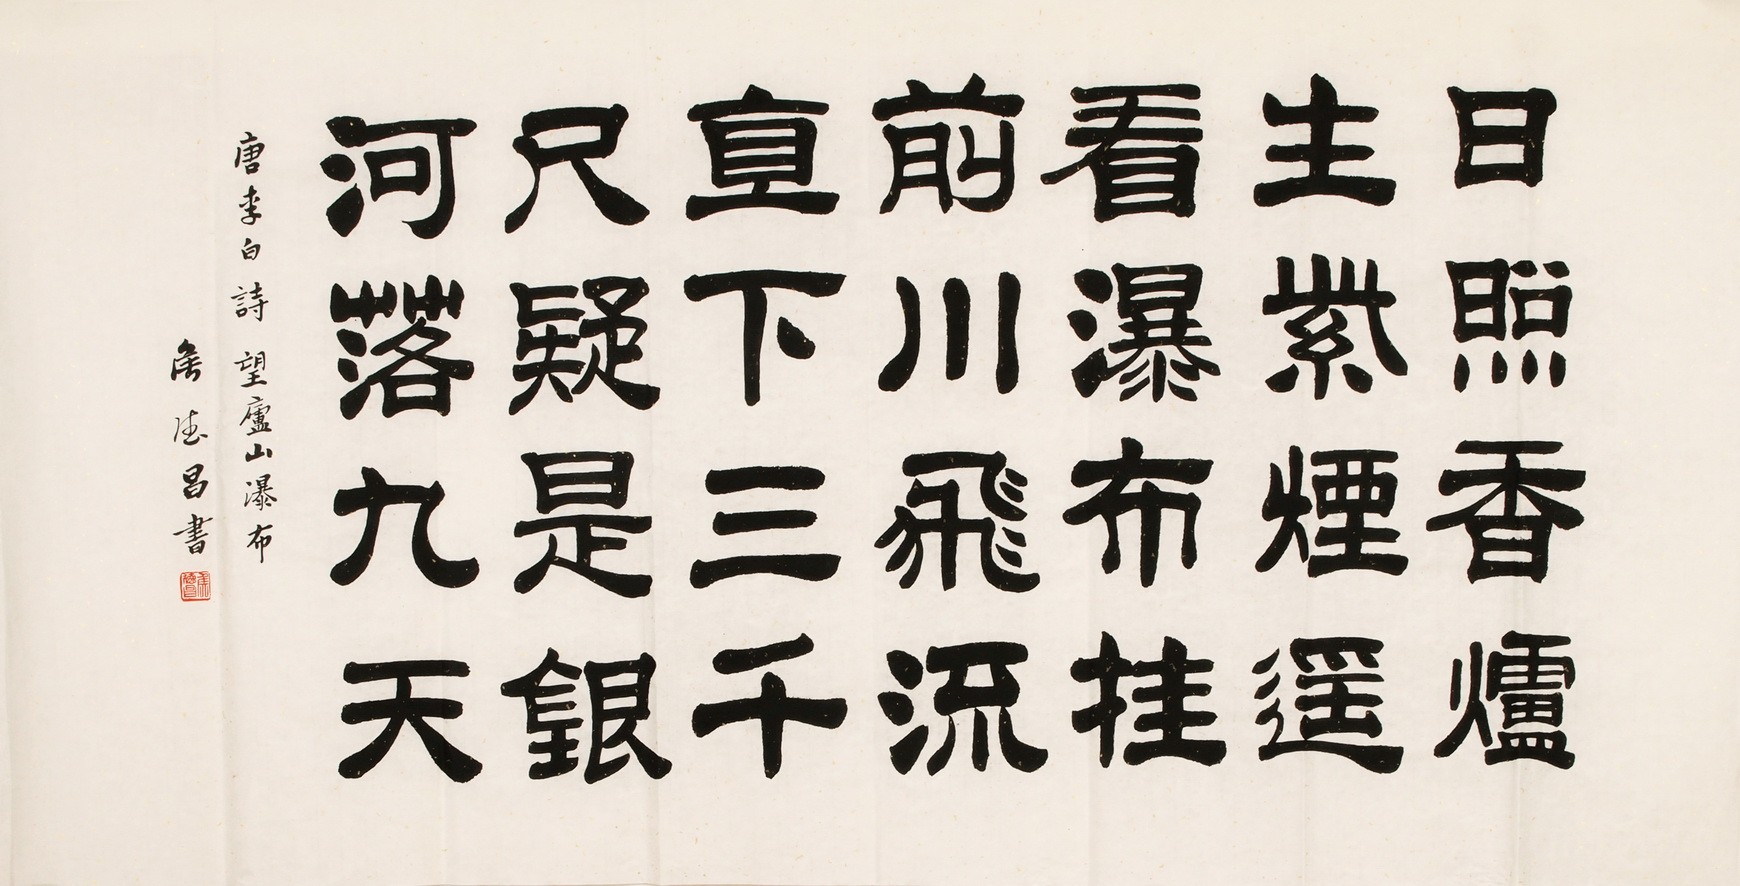 日照香爐
生紫煙遥
看瀑布挂
前川飛流
直下三千
尺疑是銀
河落九天
唐李白詩 望廬山瀑布
德昌書